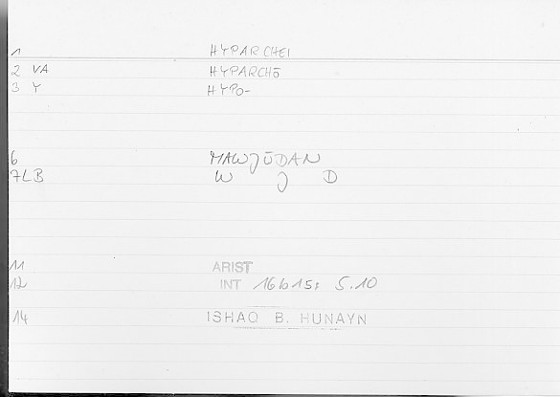 1 HYPARCHEI
2 VA HYPARCHŌ
3 Y HYPO-
6 MAWJŪDAN
7LB W J D
11 ARIST
12 INT 16b15: 5.10
14 ISHAQ B. HUNAYN